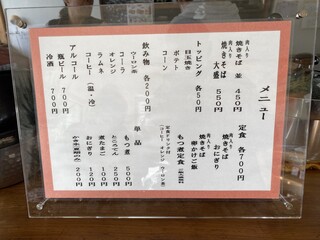 メニュー
肉入り
焼きそば 並 450円
肉入り
焼きそば 大盛 550円
トッピング 各50円
目玉焼き
ポテト
コーン
飲み物 各200円
ウーロン茶
コーラ
オレンジ
ラムネ
コーヒー(温・冷)
アルコール
瓶ビール 700円
冷酒 700円
定食 各700円
肉入り
焼きそば おにぎり
肉入り
焼きそば 卵かけご飯
もつ煮定食
単品
もつ煮 500円
煮たまご 120円
おにぎり 100円
200円